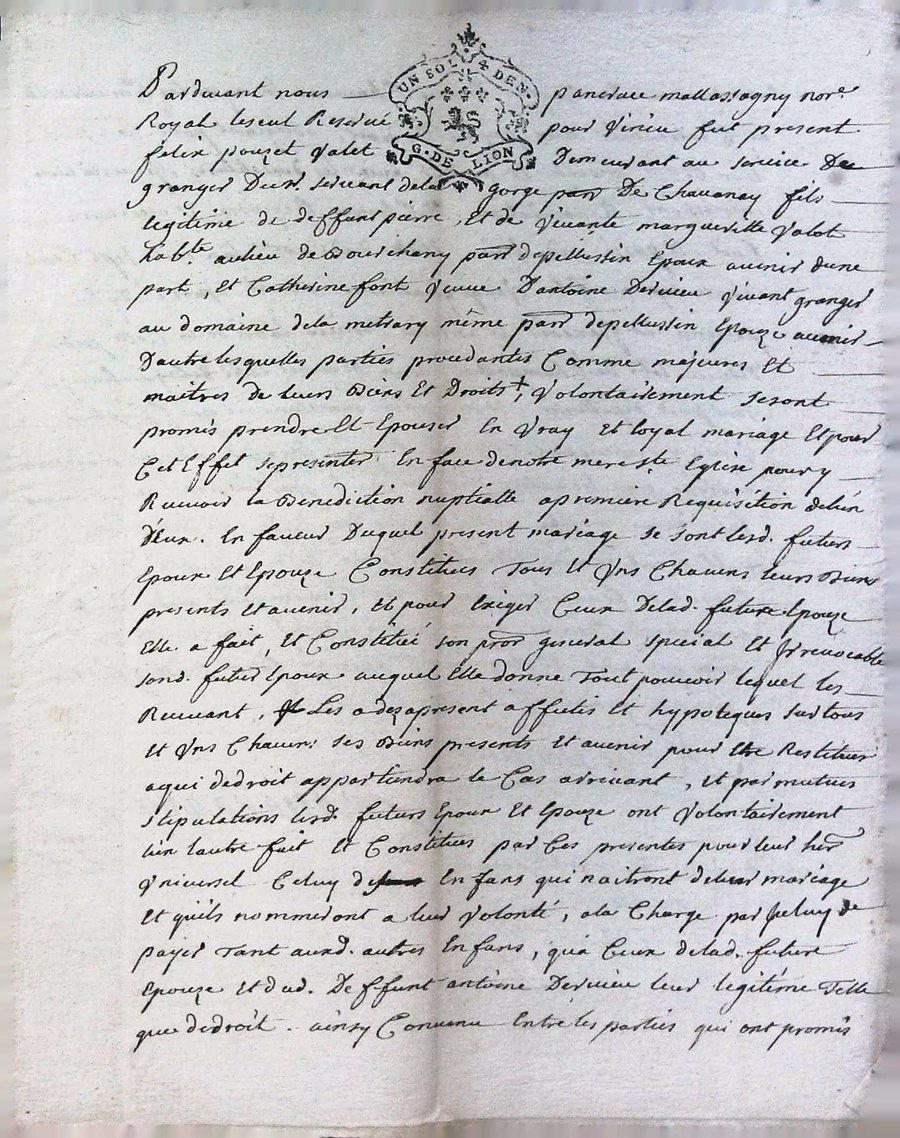 UN SOL 4 DEN.
G. DE LION
Pardevant nous pancrace mallassagny nore.
Royal le seul Reservé pour Virieu fut present
felix pouzet Valet Demeurant au service De
granger Deur. servant dela gorge parr De Chavanay fils
legitime de deffunt pierre, Et de Vivante margueritte Valot
hab.te au lieu de Bourchany parr depellussin Epoux avenir dune
part, Et Catherine font Veuve D'antoine Dervieu Vivant granger
au domaine dela metrary même parr depellussin Epouze avenir
D'autre lesquelles parties procedantes Comme majeures Et
maitres de leurs Biens Et Droits +, Volontairement se sont
promis prendre Et Epouser En Vray et loyal mariage Et pour
Cet Effet se presenter En face denotre mere ste Eglise pour y
Recevoir la Benediction nuptialle a premiere Requisition delun
D'Eux. En faveur Duquel present mariage se sont lesd. futurs
Epoux Et Epouze Constitués Tous Et Uns Chacuns leurs Biens
presents Et avenir, Et pour Exiger Ceux Delad. future Epouze
Elle a fait, Et Constitué son pror general special Et Irrevocable
sond. futur Epoux auquel Elle donne Tout pouvoir lequel les
Recevant, Les a dezapresent affectés Et hypoteques sur tous
Et Uns Chacuns ses Biens presents Et avenir pour Etre Restitués
a qui de droit appartiendra le Cas arrivant, Et par mutues
stipulations lesd. futurs Epoux Et Epouze ont Volontairement
l'un l'autre fait Et Constitués par Ces presentes pour leur herr
Universel Celuy des Enfans qui naitront deleur mariage
Et qu'ils nommeront a leur Volonté, ala Charge par Jceluy de
payer Tant aurd. autres Enfans, qu'a Ceux delad. future
Epouze Et dud. Deffunt antoine Dervieu leur legitime Telle
que dedroit. ainsy Convenu Entre les parties qui ont promis